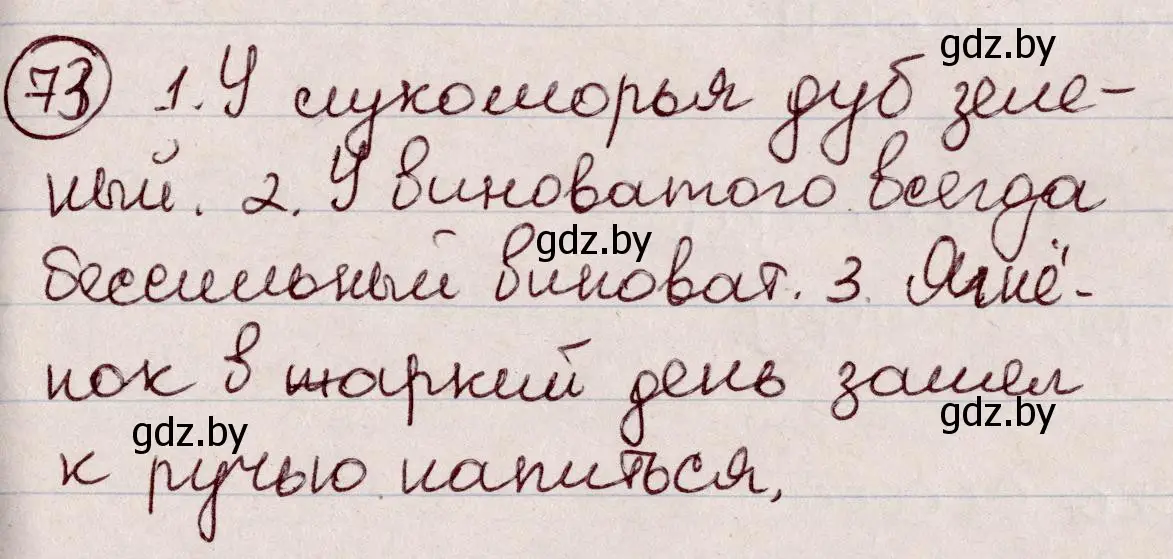 gdz.by
73 1. У лукоморья дуб зеле-
ный. 2. У виноватого всегда
gdz.by
бессильный виноват. 3. Ягнё-
нок в жаркий день зашел
gdz.by gdz.by
к ручью напиться,